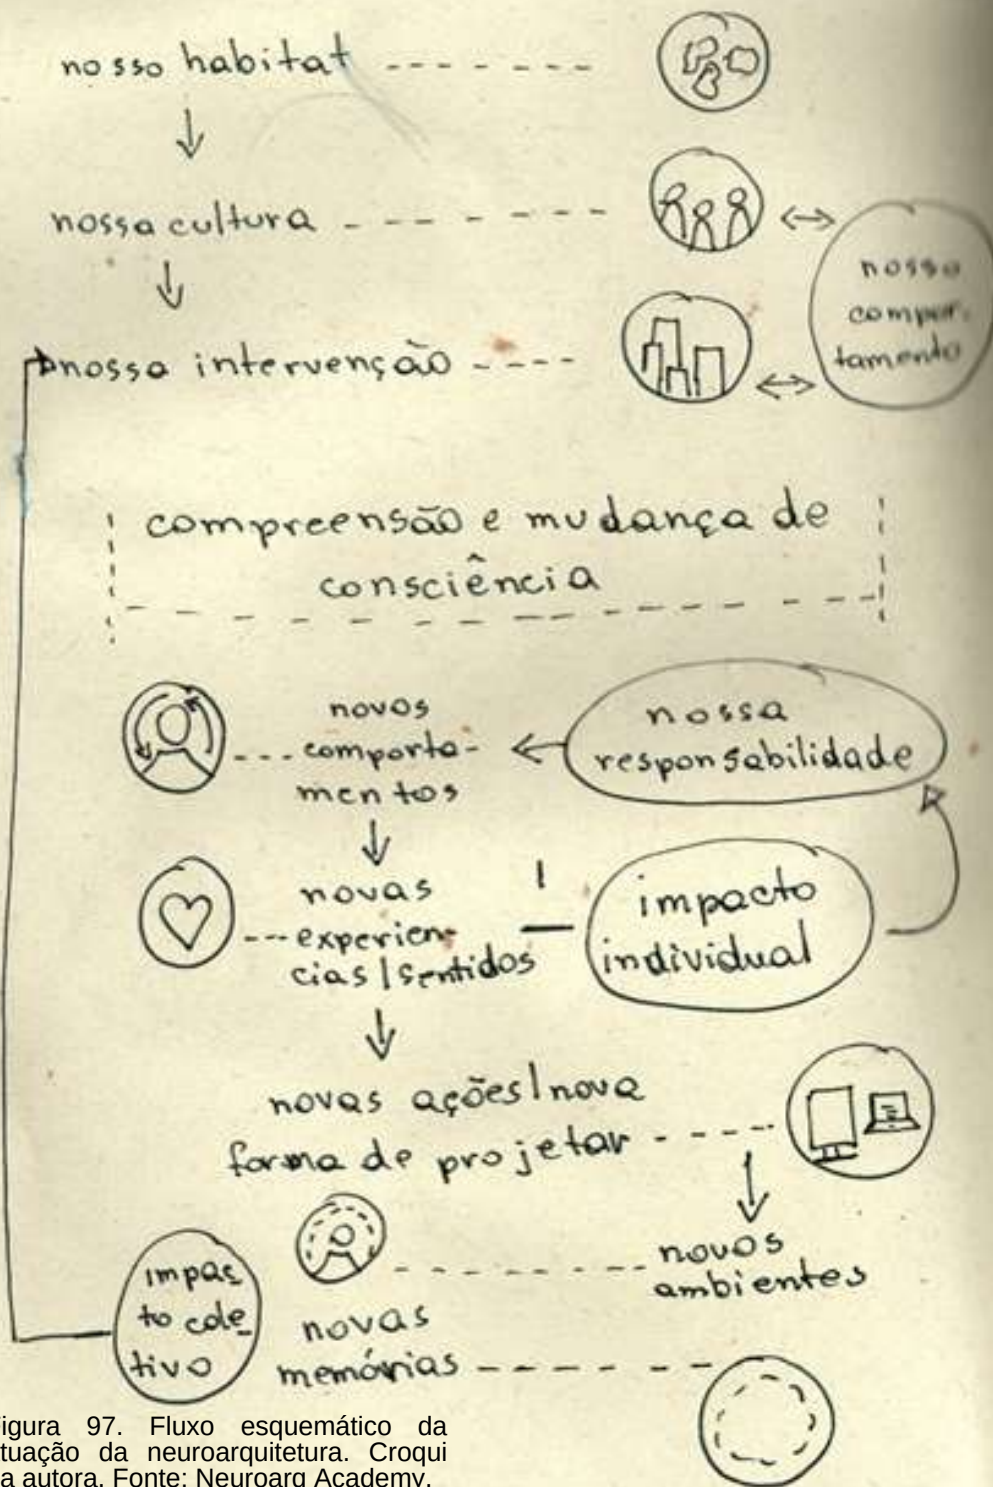 nosso habitat
nossa cultura
nosso
compor-
tamento
nossa intervenção
compreensão e mudança de
consciência
novos
comporta-
mentos
nossa
responsabilidade
novas
experien-
cias | sentidos
impacto
individual
novas ações | nova
forma de projetar
novos
ambientes
impac
to cole
tivo
novas
memórias
igura 97. Fluxo esquemático da
tuação da neuroarquitetura. Croqui
a autora. Fonte: Neuroarq Academy.